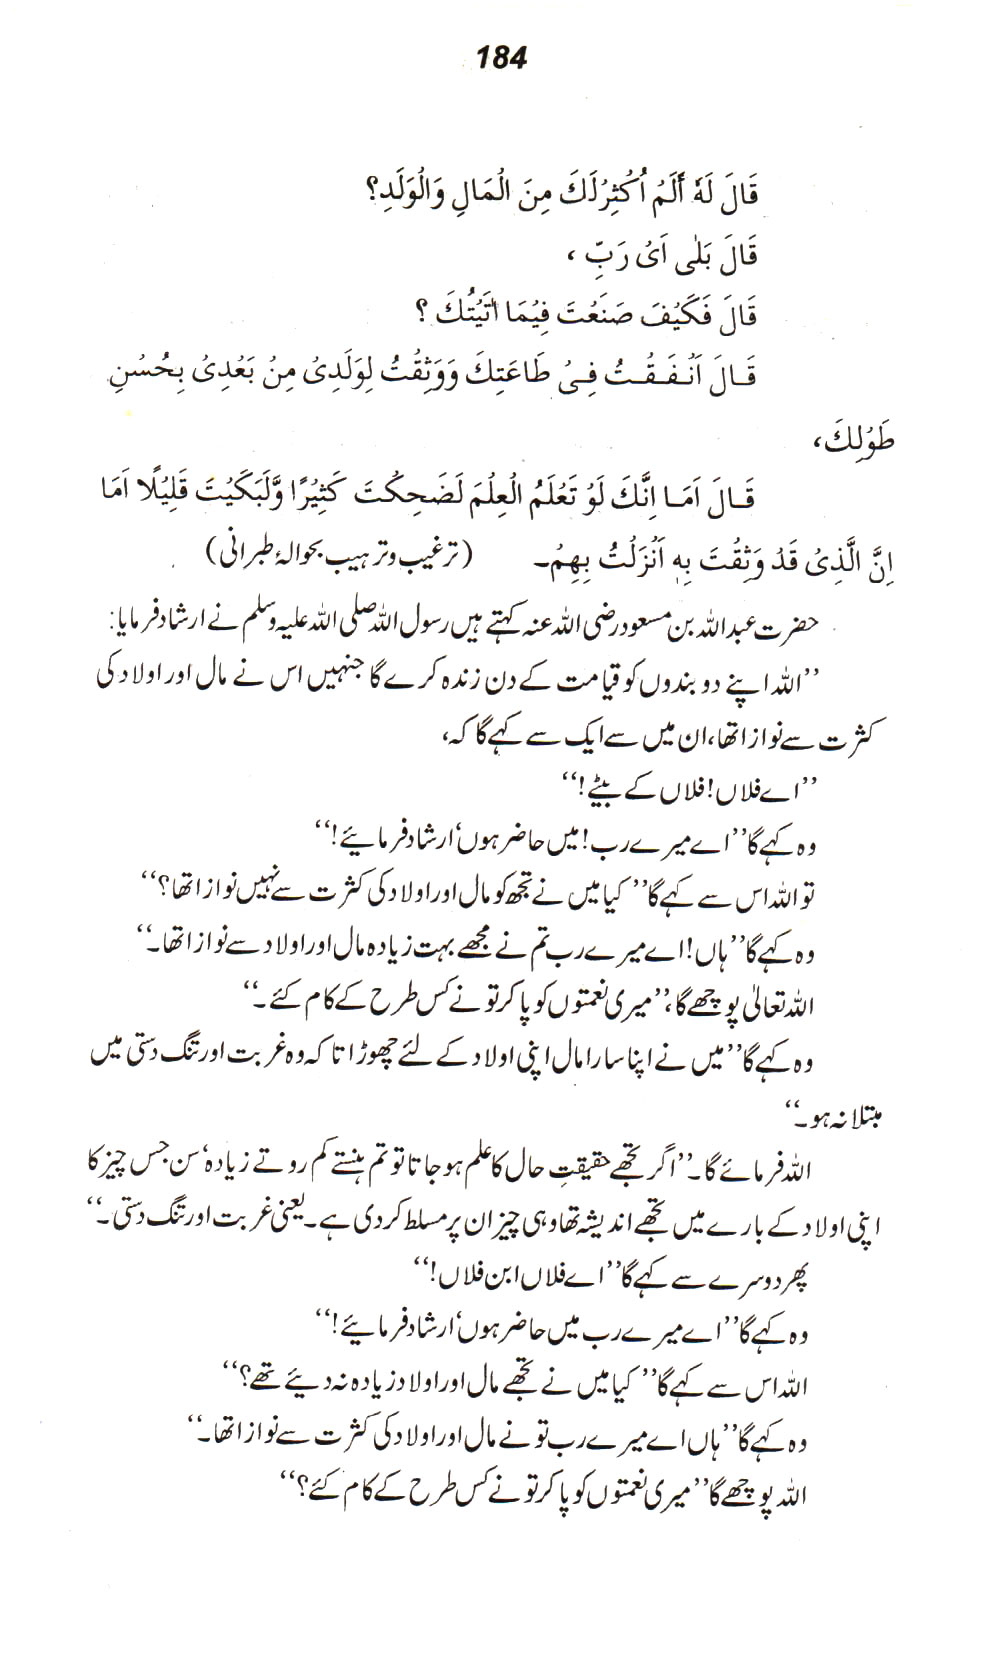 184
قَالَ لَهٗ أَلَمْ اُكْثِرْلَكَ مِنَ الْمَالِ وَالْوَلَدِ؟
قَالَ بَلٰى اَىْ رَبِّ ،
قَالَ فَكَيْفَ صَنَعْتَ فِيْمَا اٰتَيْتُكَ ؟
قَالَ اَنْفَقْتُ فِىْ طَاعَتِكَ وَوَثِقْتُ لِوَلَدِىْ مِنْ بَعْدِىْ بِحُسْنِ
طَوْلِكَ،
قَالَ اَمَا اِنَّكَ لَوْ تَعْلَمُ الْعِلْمَ لَضَحِكْتَ كَثِيْرًا وَّلَبَكَيْتَ قَلِيْلًا اَمَا
اِنَّ الَّذِىْ قَدْ وَثِقْتَ بِهٖ اَنْزَلْتُ بِهِمْ۔ (ترغیب وترہیب بحوالۂ طبرانی)
حضرت عبداللہ بن مسعود رضی اللہ عنہ کہتے ہیں رسول اللہ صلی اللہ علیہ وسلم نے ارشاد فرمایا:
’’اللہ اپنے دو بندوں کو قیامت کے دن زندہ کرے گا جنہیں اس نے مال اور اولاد کی
کثرت سے نوازا تھا، ان میں سے ایک سے کہے گا کہ،
’’اے فلاں! فلاں کے بیٹے!‘‘
وہ کہے گا ’’اے میرے رب! میں حاضر ہوں‘ ارشاد فرمائیے!‘‘
تو اللہ اس سے کہے گا ’’کیا میں نے تجھ کو مال اور اولاد کی کثرت سے نہیں نوازا تھا؟‘‘
وہ کہے گا ’’ہاں! اے میرے رب تم نے مجھے بہت زیادہ مال اور اولاد سے نوازا تھا۔‘‘
اللہ تعالیٰ پوچھے گا، ’’میری نعمتوں کو پا کر تو نے کس طرح کے کام کئے۔‘‘
وہ کہے گا ’’میں نے اپنا سارا مال اپنی اولاد کے لئے چھوڑا تا کہ وہ غربت اور تنگ دستی میں
مبتلا نہ ہو۔‘‘
اللہ فرمائے گا۔ ’’اگر تجھے حقیقتِ حال کا علم ہو جاتا تو تم ہنستے کم روتے زیادہ‘ سن جس چیز کا
اپنی اولاد کے بارے میں تجھے اندیشہ تھا وہی چیز ان پر مسلط کر دی ہے۔ یعنی غربت اور تنگ دستی۔‘‘
پھر دوسرے سے کہے گا ’’اے فلاں ابن فلاں!‘‘
وہ کہے گا ’’اے میرے رب میں حاضر ہوں‘ ارشاد فرمائیے!‘‘
اللہ اس سے کہے گا ’’کیا میں نے تجھے مال اور اولاد زیادہ نہ دیئے تھے؟‘‘
وہ کہے گا ’’ہاں اے میرے رب تو نے مال اور اولاد کی کثرت سے نوازا تھا۔‘‘
اللہ پوچھے گا ’’میری نعمتوں کو پا کر تو نے کس طرح کے کام کئے؟‘‘